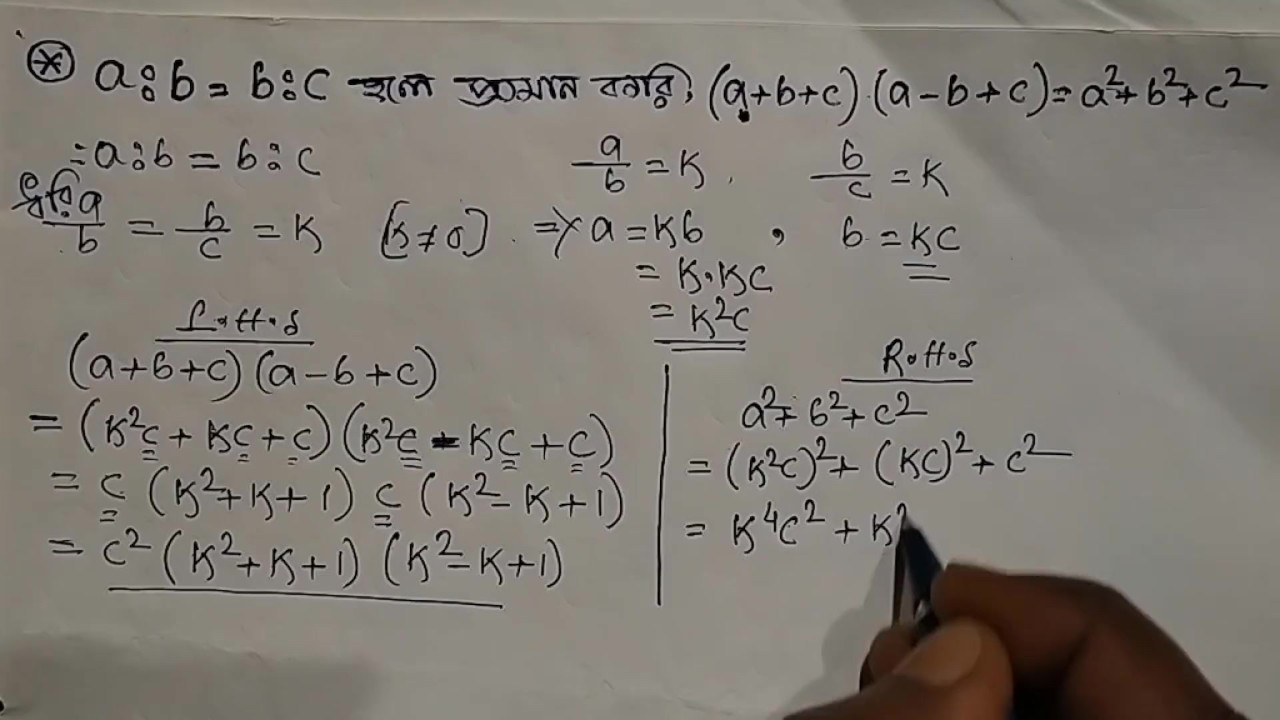 * a:b = b:c হলে প্রমান করি, (a+b+c).(a-b+c)=a²+b²+c²
=a:b = b:c
ধরি, a/b = b/c = K [K≠0]
a/b = K, b/c = K
=> a = Kb , b = KC
= K.KC
= K²C
L.H.S
(a+b+c)(a-b+c)
= (K²c + KC + c)(K²c - KC + c)
= c (K²+K+1) c (K²-K+1)
= c² (K²+K+1) (K²-K+1)
R.H.S
a²+b²+c²
= (K²C)²+(KC)²+c²
= K⁴C²+K²